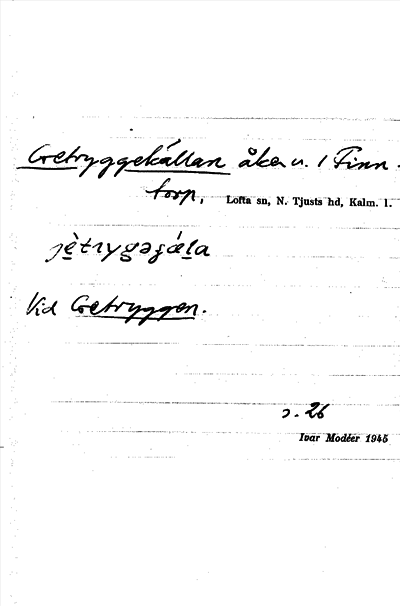 Getryggekällan åker u. / Finn-
torp, Lofta sn, N. Tjusts hd, Kalm. l.
Vid Getryggen.
s. 26
Ivar Modéer 1945